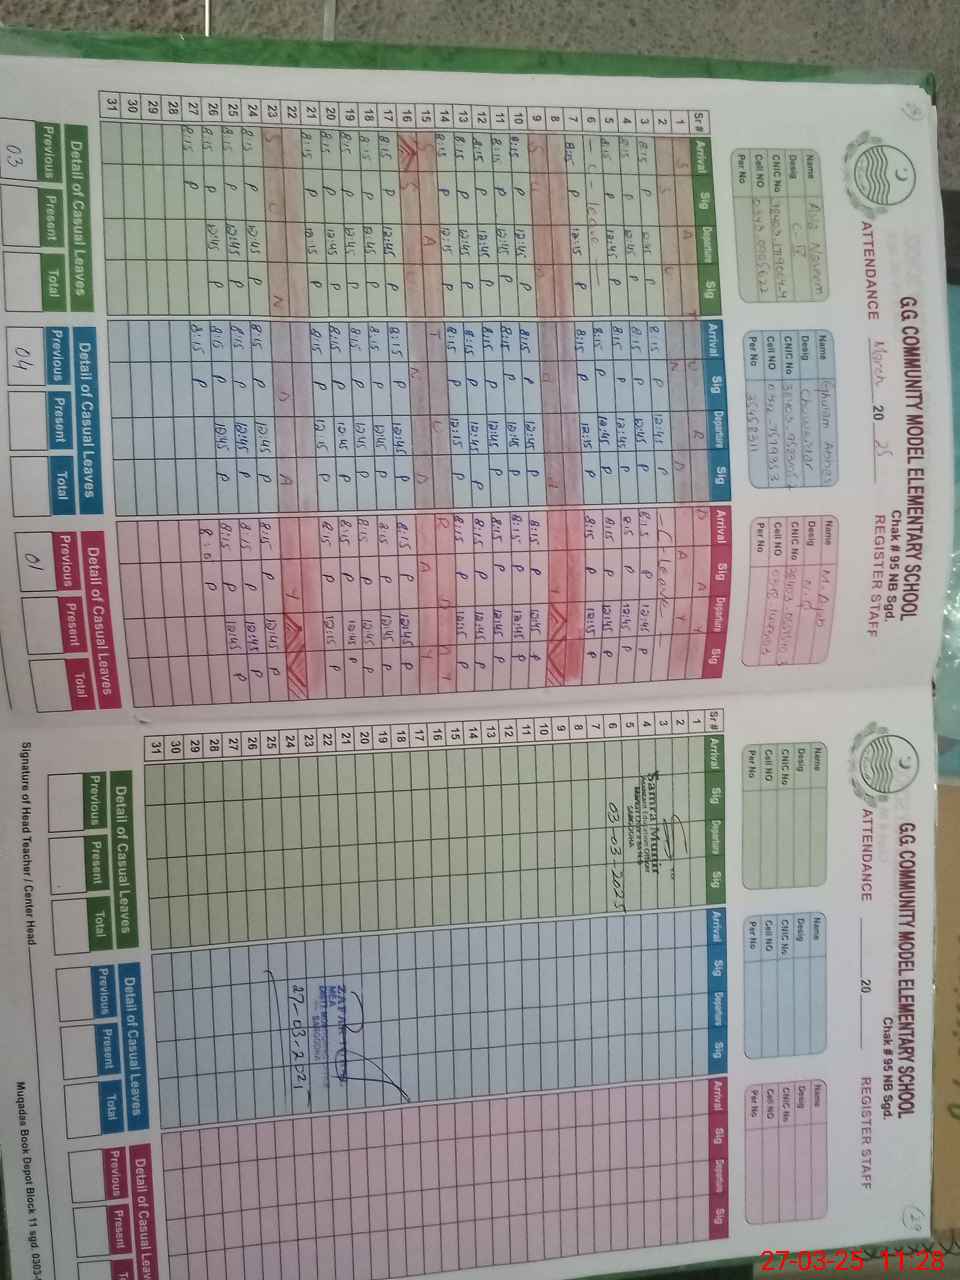 GG COMMUNITY MODEL ELEMENTARY SCHOOL
Chak # 95 NB Sgd.
ATTENDANCE March 20 25 REGISTER STAFF
Name
Desig
CNIC No
Cell NO
Per No
Name Ghulam Abbas
Desig Chowkidar
CNIC No
Cell NO
Per No
Name M. Ayub
Desig
CNIC No
Cell NO
Per No
Sr # Arrival Sig Departure Sig Arrival Sig Departure Sig Arrival Sig Departure Sig
1 S A T U R D A Y
2 S U N D A Y
3 8:15 P 12:45 P 8:15 P 12:45 P - C - leave -
4 8:15 P 12:45 P 8:15 P 12:45 P 8:15 P 12:45 P
5 8:15 P 12:45 P 8:15 P 12:45 P 8:15 P 12:45 P
6 - C - leave - 8:15 P 12:45 P 8:15 P 12:45 P
7 8:15 P 12:15 P 8:15 P 12:15 P 8:15 P 12:15 P
8
9 S U N D A Y
10 8:15 P 12:45 P 8:15 P 12:45 P 8:15 P 12:45 P
11 8:15 P 12:45 P 8:15 P 12:45 P 8:15 P 12:45 P
12 8:15 P 12:45 P 8:15 P 12:45 P 8:15 P 12:45 P
13 8:15 P 12:45 P 8:15 P 12:45 P 8:15 P 12:45 P
14 8:15 P 12:15 P 8:15 P 12:15 P 8:15 P 12:15 P
15 S A T U R D A Y
16 S U N D A Y
17 8:15 P 12:45 P 8:15 P 12:45 P 8:15 P 12:45 P
18 8:15 P 12:45 P 8:15 P 12:45 P 8:15 P 12:45 P
19 8:15 P 12:45 P 8:15 P 12:45 P 8:15 P 12:45 P
20 8:15 P 12:45 P 8:15 P 12:45 P 8:15 P 12:45 P
21 8:15 P 12:15 P 8:15 P 12:15 P 8:15 P 12:15 P
22
23 S U N D A Y
24 8:15 P 12:45 P 8:15 P 12:45 P 8:15 P 12:45 P
25 8:15 P 12:45 P 8:15 P 12:45 P 8:15 P 12:45 P
26 8:15 P 12:45 P 8:15 P 12:45 P 8:15 P 12:45 P
27 8:15 P 8:15 P P
28
29
30
31
Detail of Casual Leaves Detail of Casual Leaves Detail of Casual Leaves
Previous Present Total Previous Present Total Previous Present Total
03 04 01
GG COMMUNITY MODEL ELEMENTARY SCHOOL
Chak # 95 NB Sgd.
29
ATTENDANCE 20 REGISTER STAFF
Name
Desig
CNIC No
Cell NO
Per No
Name
Desig
CNIC No
Cell NO
Per No
Name
Desig
CNIC No
Cell NO
Per No
Sr # Arrival Sig Departure Sig Arrival Sig Departure Sig Arrival Sig Departure Sig
1
2
3
4
5
6
7
8
9
10
11
12
13
14
15
16
17
18
19
20
21
22
23
24
25
26
27
28
29
30
31
Samra Munir
Assistant Education Officer
SARGODHA
03-03-2025
ZAFAR
MEA
SARGODHA
27-03-2021
Detail of Casual Leaves Detail of Casual Leaves Detail of Casual Leav
Previous Present Total Previous Present Total Previous Present T
Signature of Head Teacher / Center Head
Muqadas Book Depot Block 11 sgd. 0303-
27-03-25 11:28